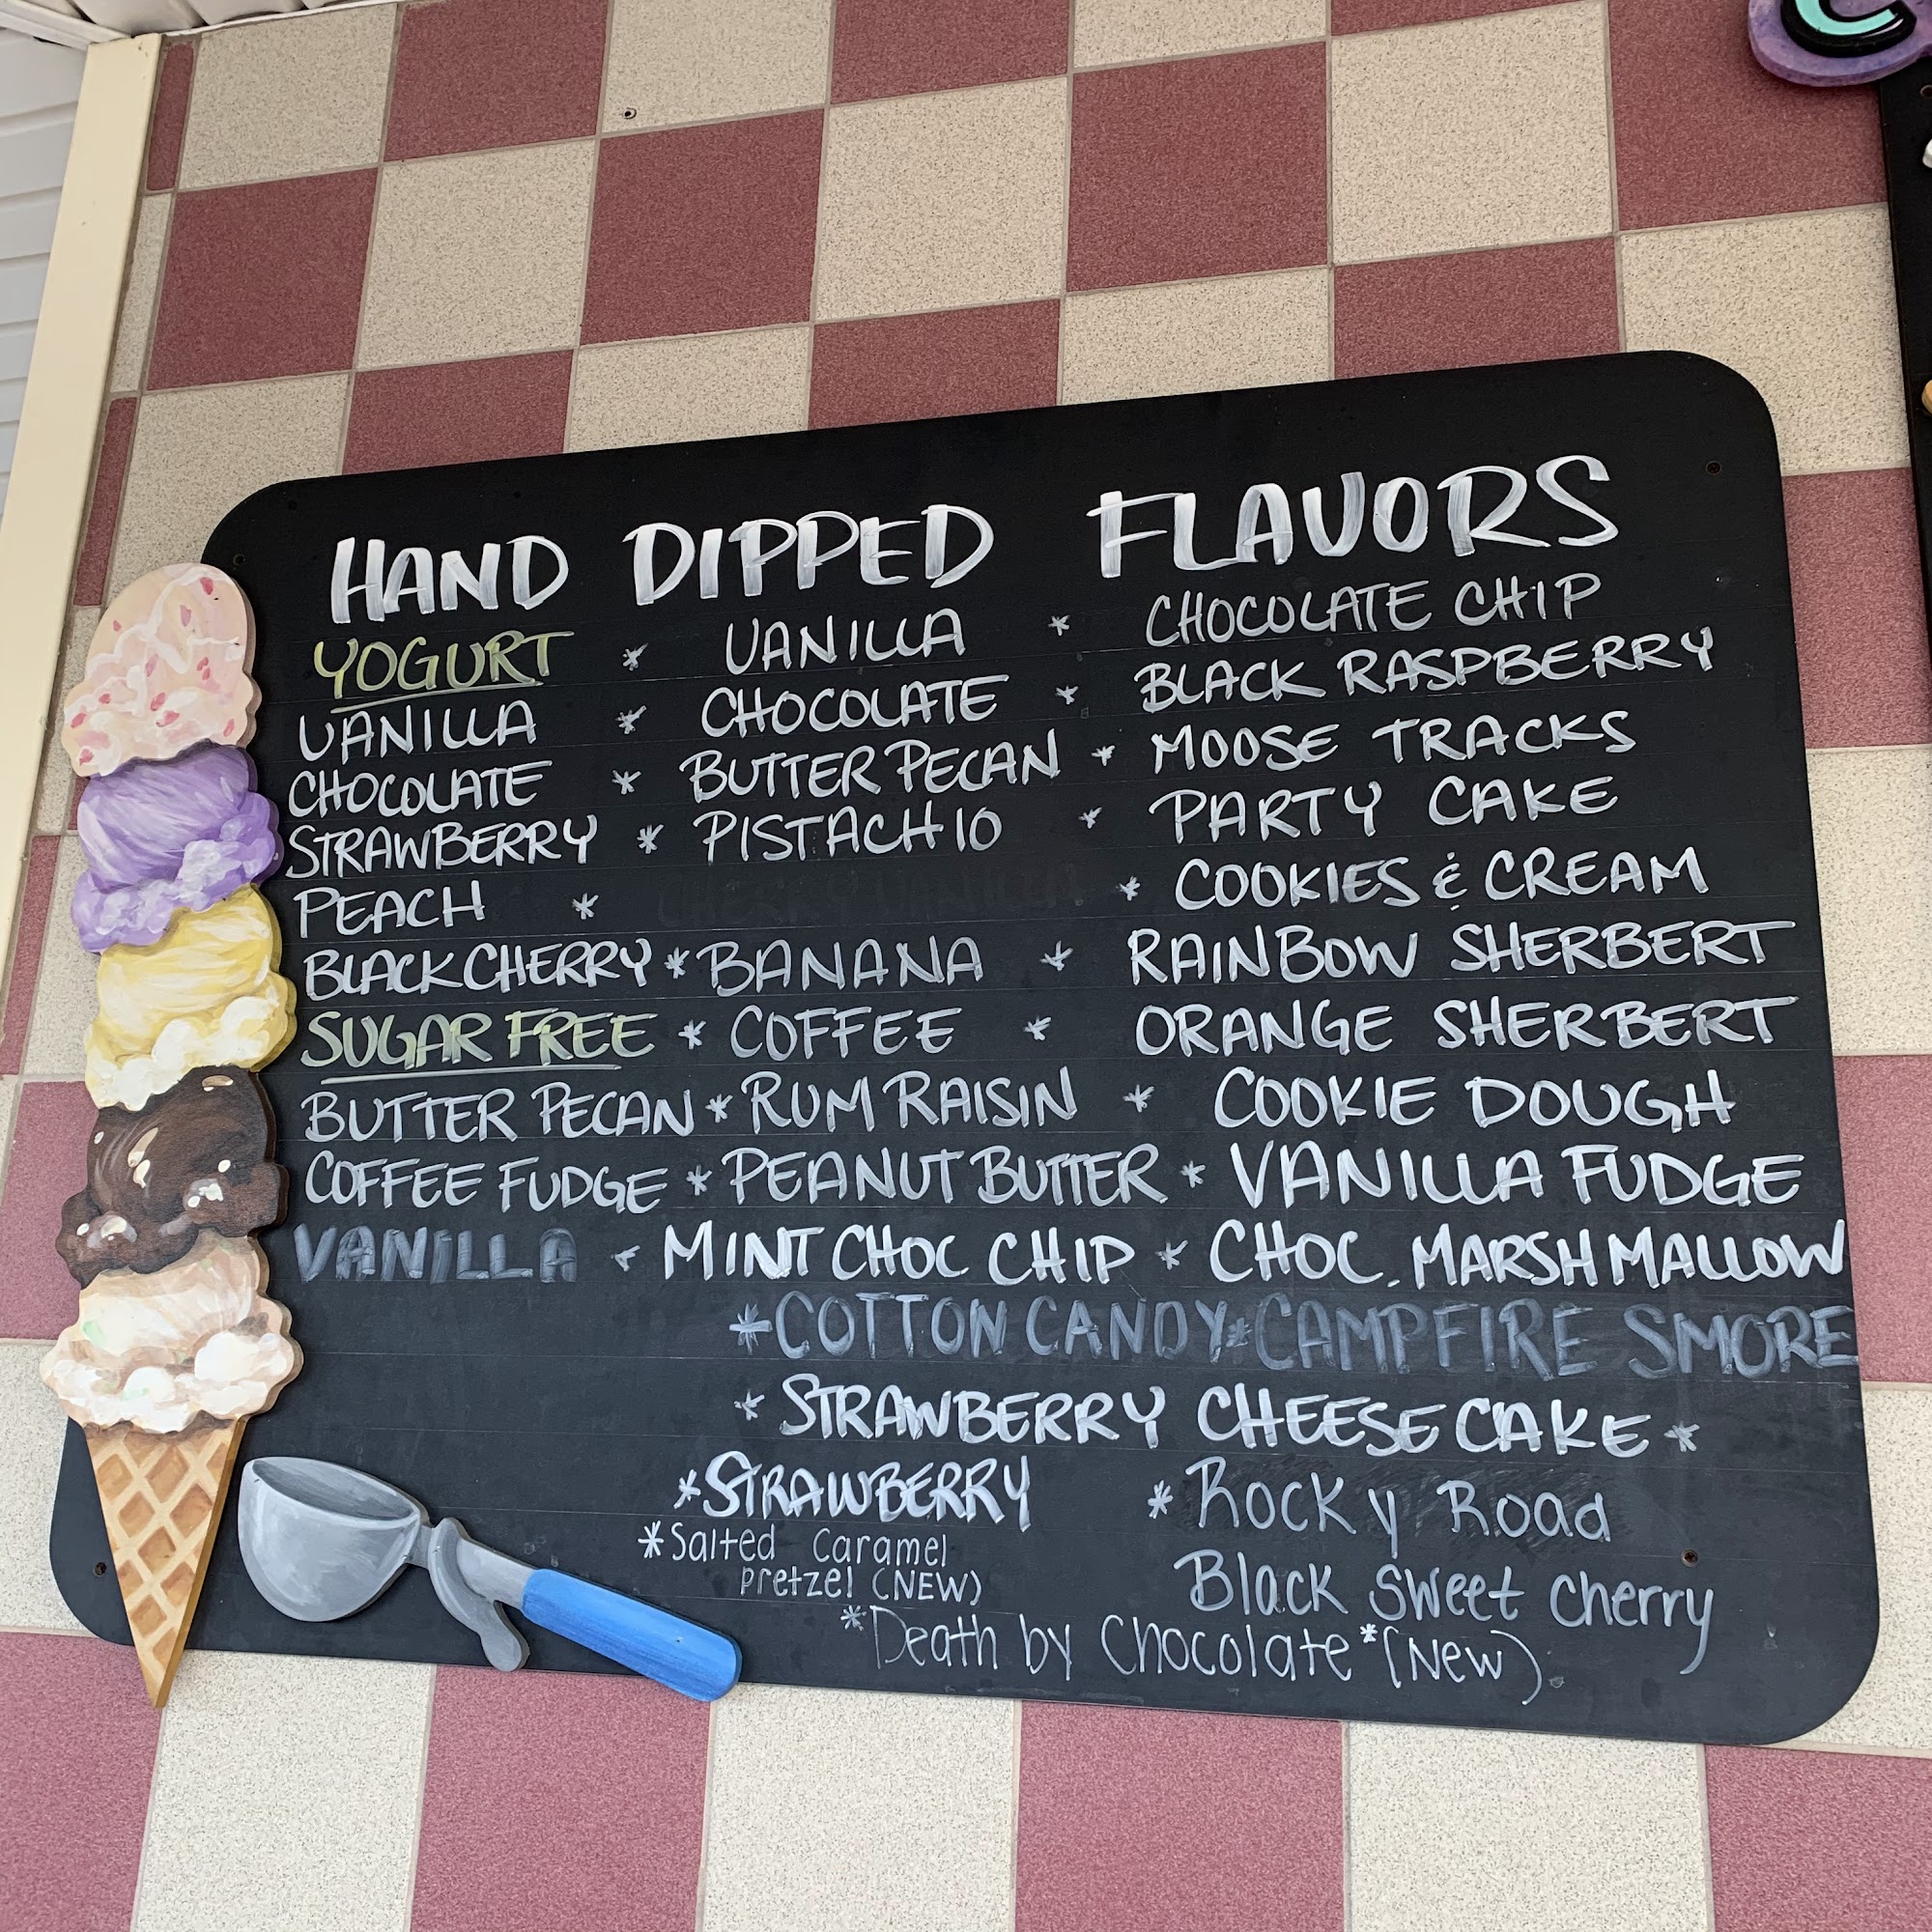 HAND DIPPED FLAVORS
YOGURT * VANILLA * CHOCOLATE CHIP
VANILLA * CHOCOLATE * BLACK RASPBERRY
CHOCOLATE * BUTTER PECAN * MOOSE TRACKS
STRAWBERRY * PISTACHIO * PARTY CAKE
PEACH * * COOKIES & CREAM
BLACK CHERRY * BANANA * RAINBOW SHERBERT
SUGAR FREE * COFFEE * ORANGE SHERBERT
BUTTER PECAN * RUM RAISIN * COOKIE DOUGH
COFFEE FUDGE * PEANUT BUTTER * VANILLA FUDGE
VANILLA * MINT CHOC CHIP * CHOC. MARSHMALLOW
*COTTON CANDY*CAMPFIRE SMORE
* STRAWBERRY CHEESECAKE *
*STRAWBERRY * Rocky Road
*Salted Caramel
Pretzel (NEW)
Black Sweet Cherry
*Death by Chocolate* (New)